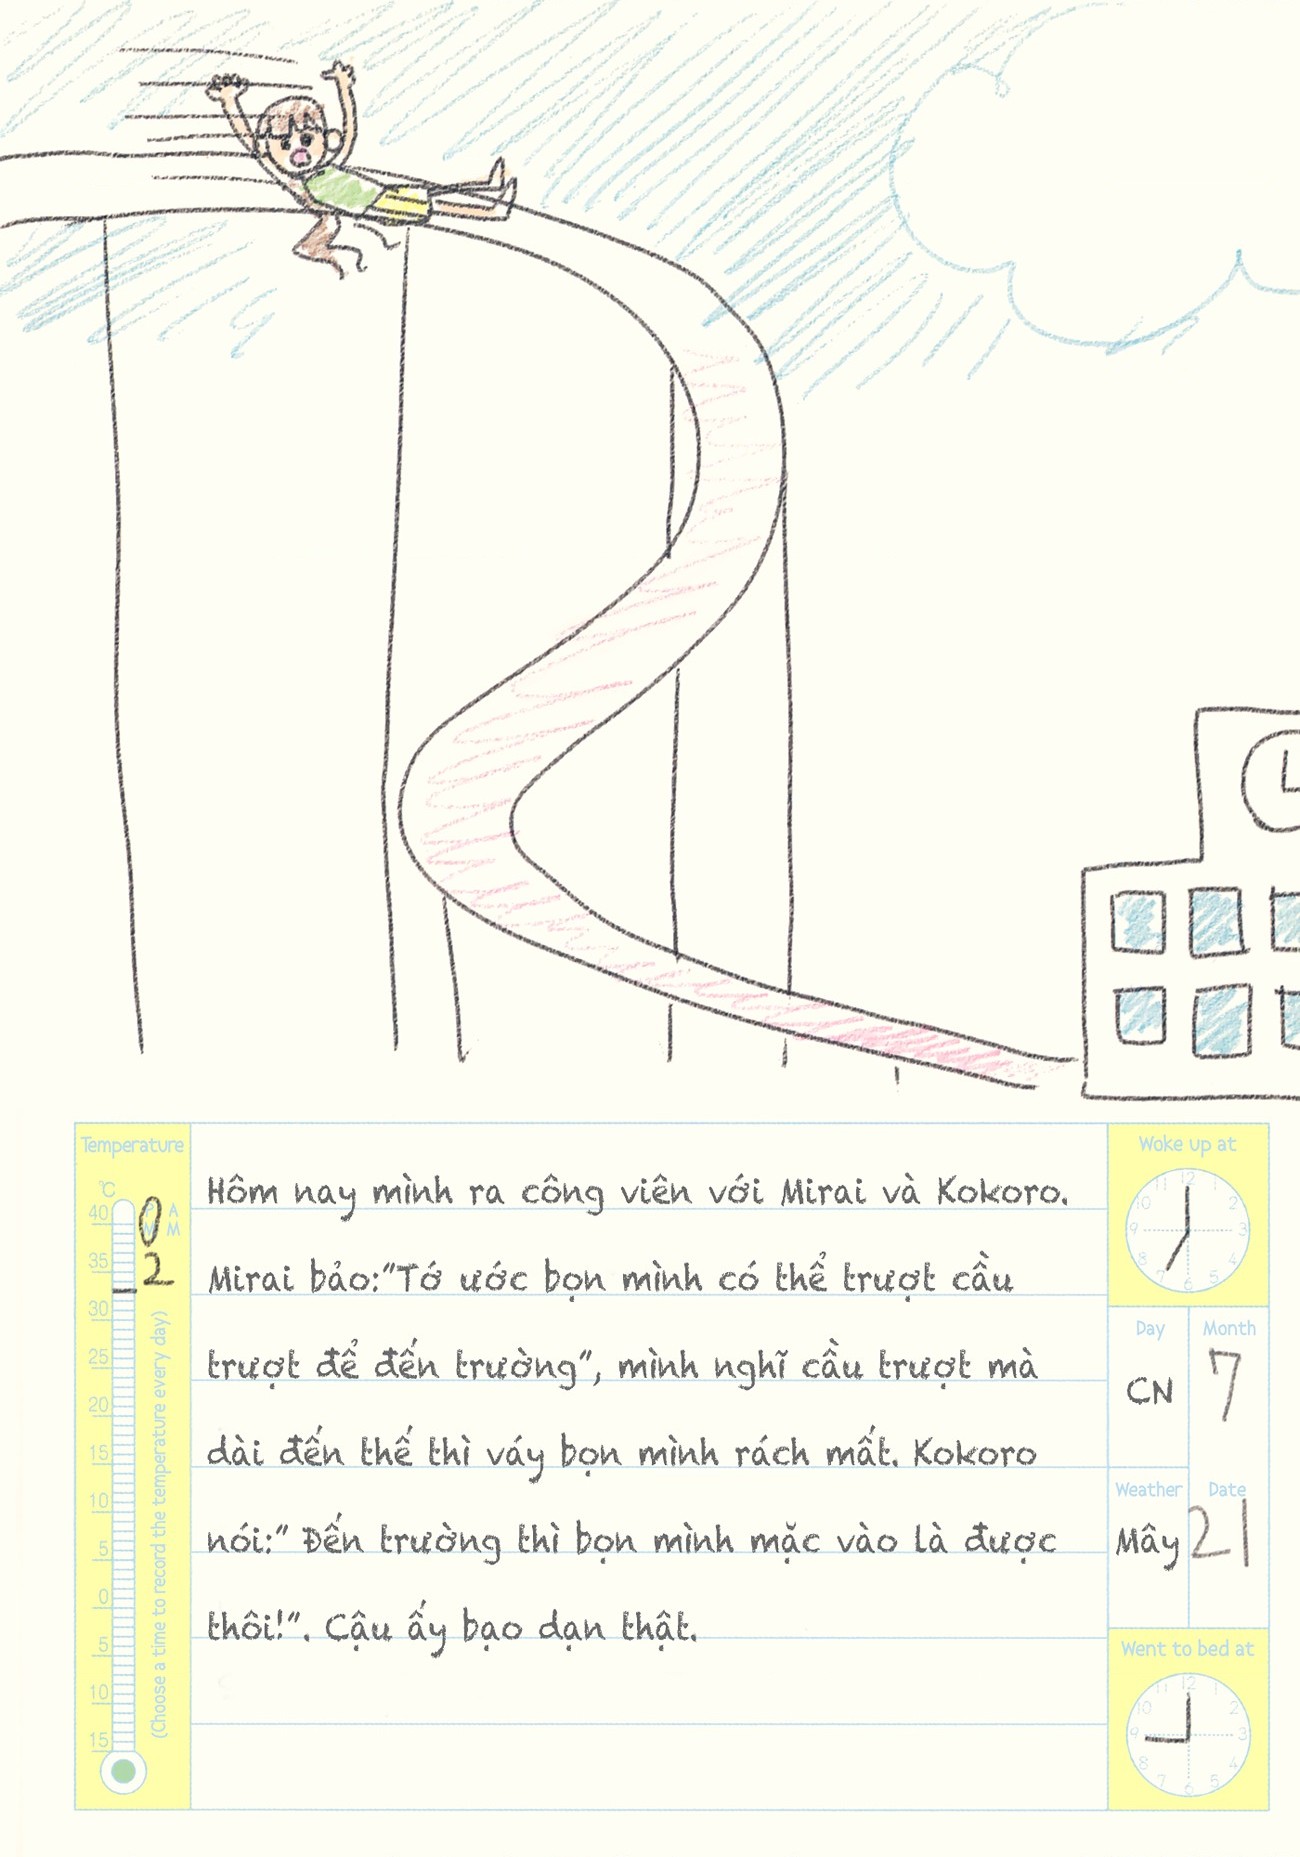 Temperature
℃
40
35
30
25
20
15
10
5
0
5
10
15
A
M
2
(Choose a time to record the temperature every day)
Hôm nay mình ra công viên với Mirai và Kokoro.
Mirai bảo:"Tớ ước bọn mình có thể trượt cầu
trượt để đến trường", mình nghĩ cầu trượt mà
dài đến thế thì váy bọn mình rách mất. Kokoro
nói:" Đến trường thì bọn mình mặc vào là được
thôi!". Cậu ấy bạo dạn thật.
Woke up at
12
1
2
3
4
5
6
8
9
10
11
Day
Month
CN
7
Weather
Date
Mây
21
Went to bed at
12
1
2
3
4
5
6
7
8
9
10
11